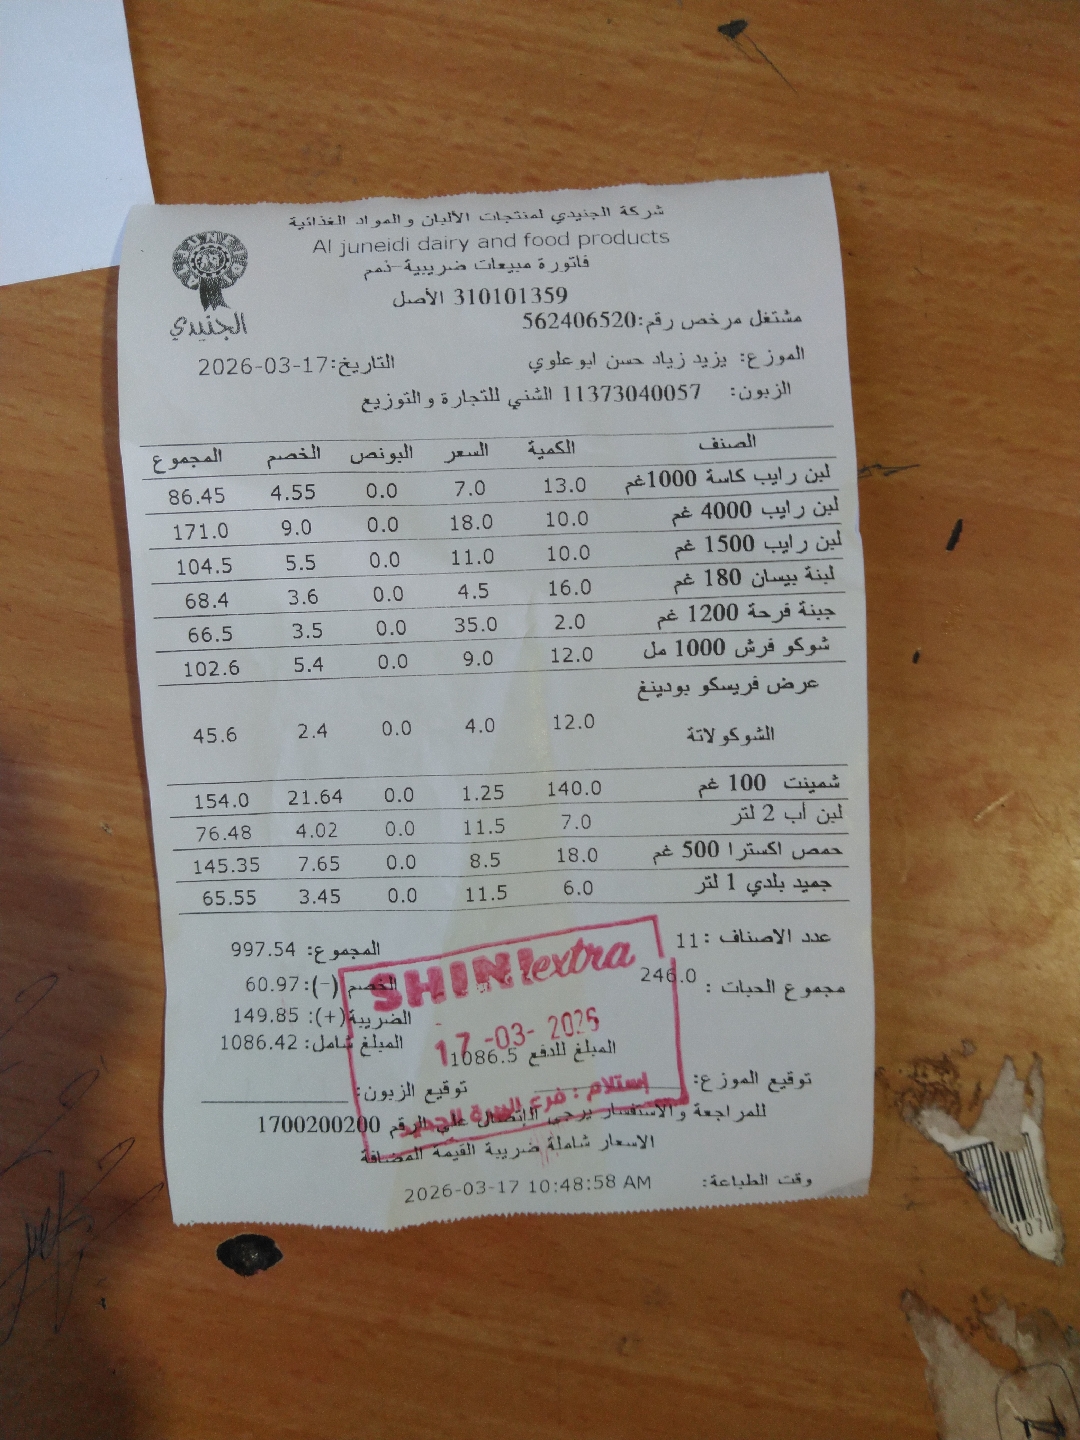 شركة الجنيدي لمنتجات الألبان والمواد الغذائية
Al juneidi dairy and food products
فاتورة مبيعات ضريبية-ذمم
310101359 الأصل
مشتغل مرخص رقم:562406520
الجنيدي
الموزع: يزيد زياد حسن ابوعلوي
التاريخ:2026-03-17
الزبون: 11373040057 الشني للتجارة والتوزيع
الصنف الكمية السعر البونص الخصم المجموع
لبن رايب كاسة 1000غم 13.0 7.0 0.0 4.55 86.45
لبن رايب 4000 غم 10.0 18.0 0.0 9.0 171.0
لبن رايب 1500 غم 10.0 11.0 0.0 5.5 104.5
لبنة بيسان 180 غم 16.0 4.5 0.0 3.6 68.4
جبنة فرحة 1200 غم 2.0 35.0 0.0 3.5 66.5
شوكو فرش 1000 مل 12.0 9.0 0.0 5.4 102.6
عرض فريسكو بودينغ
الشوكولاتة 12.0 4.0 0.0 2.4 45.6
شمينت 100 غم 140.0 1.25 0.0 21.64 154.0
لبن أب 2 لتر 7.0 11.5 0.0 4.02 76.48
حمص اكسترا 500 غم 18.0 8.5 0.0 7.65 145.35
جميد بلدي 1 لتر 6.0 11.5 0.0 3.45 65.55
عدد الاصناف : 11
المجموع: 997.54
مجموع الحبات : 246.0
الخصم (-): 60.97
الضريبة(+): 149.85
المبلغ شامل: 1086.42
SHINI extra
17-03-2026
المبلغ للدفع 1086.5
إستلام : فرع
توقيع الموزع:
توقيع الزبون:
للمراجعة والاستفسار يرجى الاتصال على الرقم 1700200200
الاسعار شاملة ضريبة القيمة المضافة
وقت الطباعة: 2026-03-17 10:48:58 AM
107